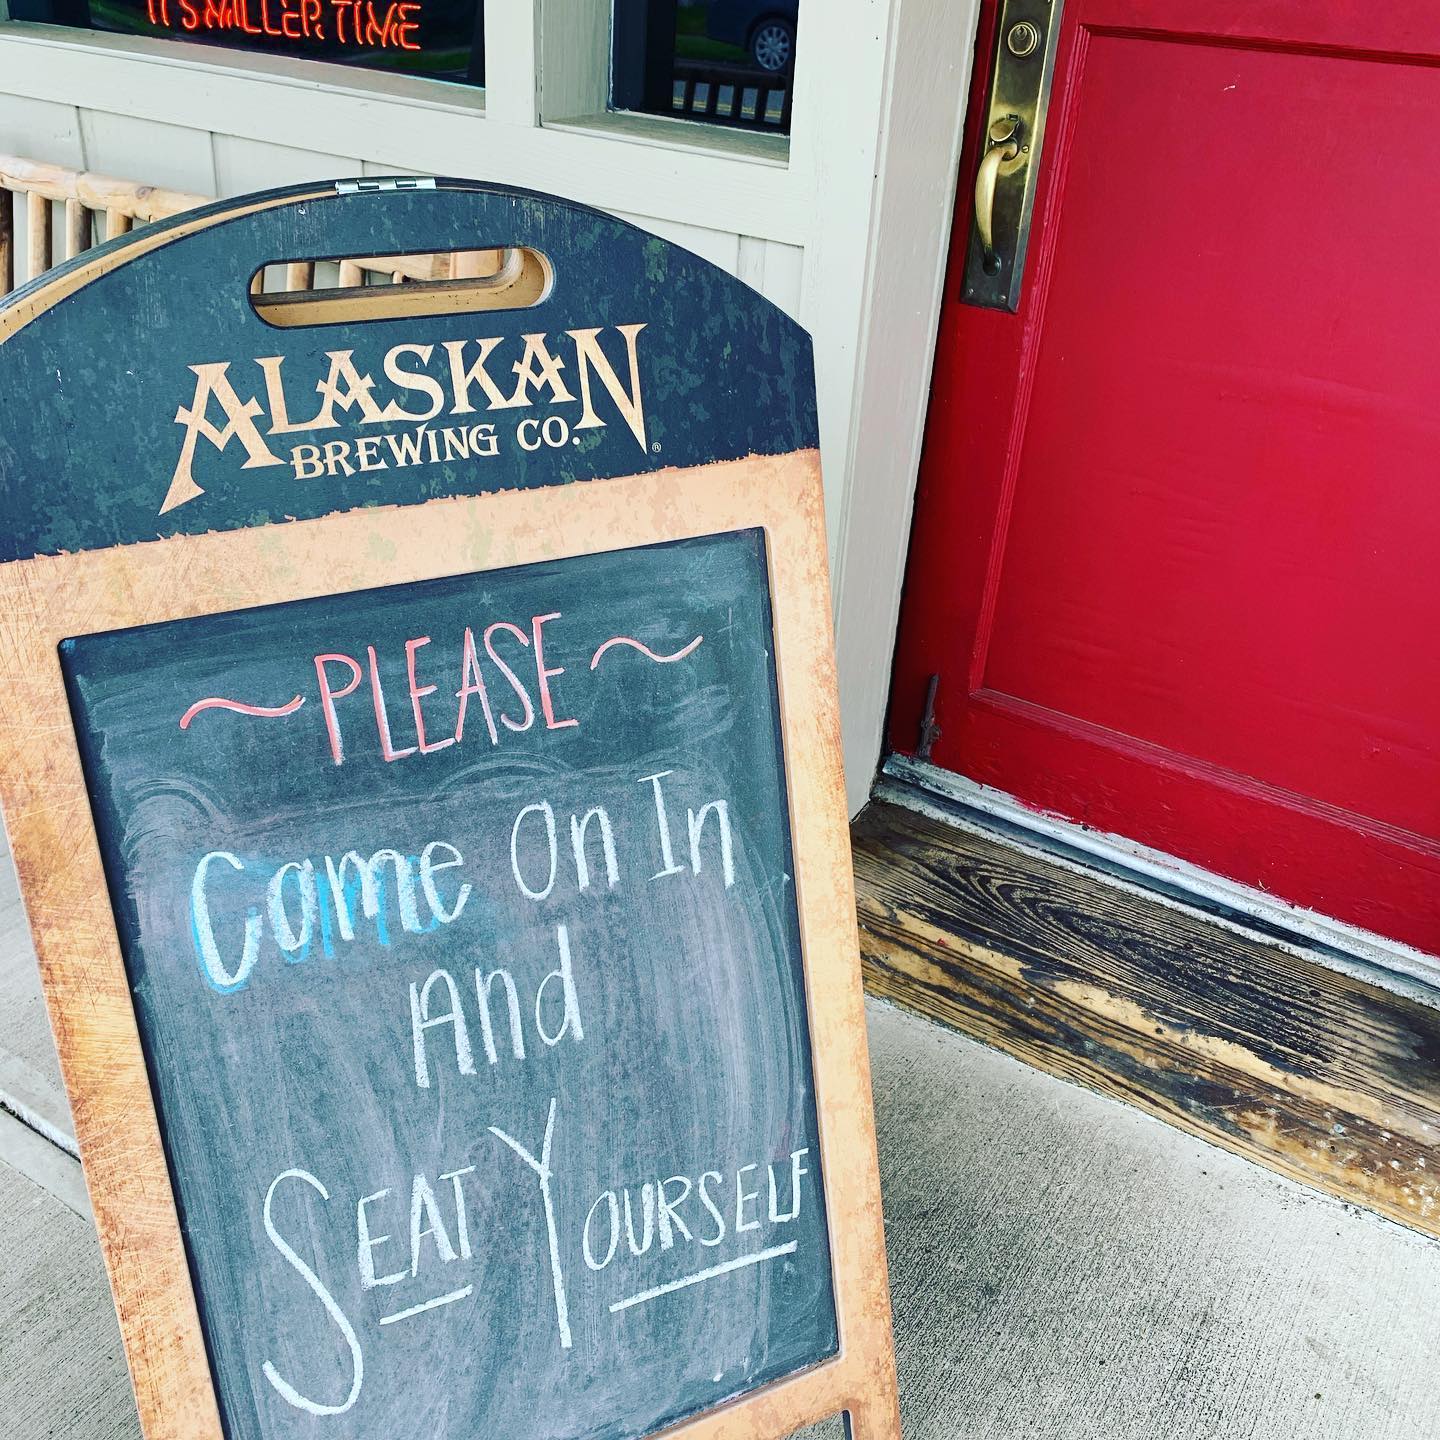 IT'S MILLER TIME
ALASKAN
BREWING CO.®
~ PLEASE ~
Come On In
And
SEAT YOURSELF